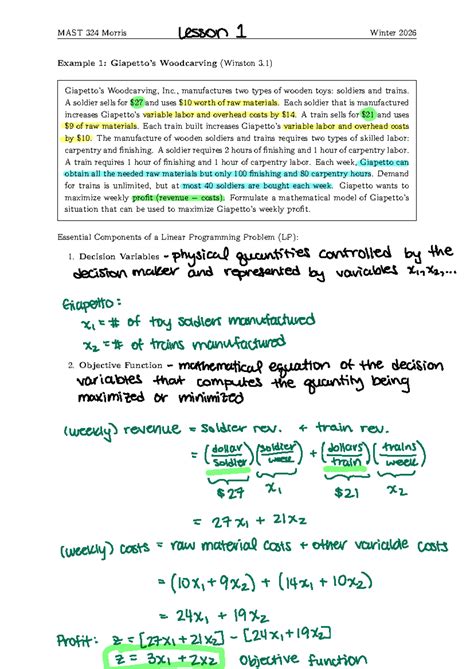 MAST 324 Morris
Lesson 1
Winter 2026
Example 1: Giapetto's Woodcarving (Winston 3.1)
Giapetto's Woodcarving, Inc., manufactures two types of wooden toys: soldiers and trains.
A soldier sells for $27 and uses $10 worth of raw materials. Each soldier that is manufactured
increases Giapetto's variable labor and overhead costs by $14. A train sells for $21 and uses
$9 of raw materials. Each train built increases Giapetto's variable labor and overhead costs
by $10. The manufacture of wooden soldiers and trains requires two types of skilled labor:
carpentry and finishing. A soldier requires 2 hours of finishing and 1 hour of carpentry labor.
A train requires 1 hour of finishing and 1 hour of carpentry labor. Each week, Giapetto can
obtain all the needed raw materials but only 100 finishing and 80 carpentry hours. Demand
for trains is unlimited, but at most 40 soldiers are bought each week. Giapetto wants to
maximize weekly profit (revenue − costs). Formulate a mathematical model of Giapetto's
situation that can be used to maximize Giapetto's weekly profit.
Essential Components of a Linear Programming Problem (LP):
1. Decision Variables - physical quantities controlled by the
decision maker and represented by variables x₁, x₂, ...
Giapetto:
x₁ = # of toy soldiers manufactured
x₂ = # of trains manufactured
2. Objective Function - mathematical equation of the decision
variables that computes the quantity being
maximized or minimized
(weekly) revenue = soldier rev. + train rev.
= (dollar/soldier)(soldier/week) + (dollars/train)(trains/week)
$27 x₁ $21 x₂
= 27x₁ + 21x₂
(weekly) costs = raw material costs + other variable costs
= (10x₁ + 9x₂) + (14x₁ + 10x₂)
= 24x₁ + 19x₂
Profit: z = [27x₁ + 21x₂] - [24x₁ + 19x₂]
z = 3x₁ + 2x₂ objective function